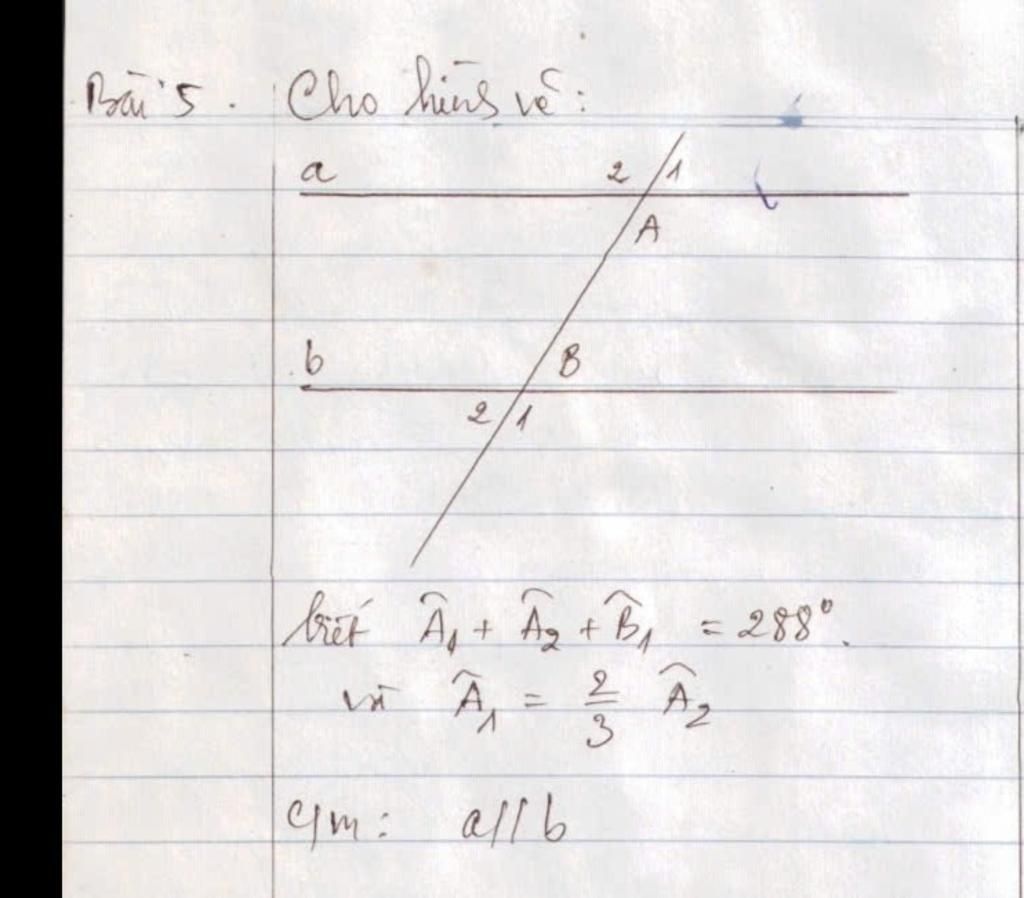 Bài 5. Cho hình vẽ:
a 2 1
A
b B
2 1
biết Â₁ + Â₂ + B̂₁ = 288°.
và Â₁ = 2/3 Â₂
C/m: a // b